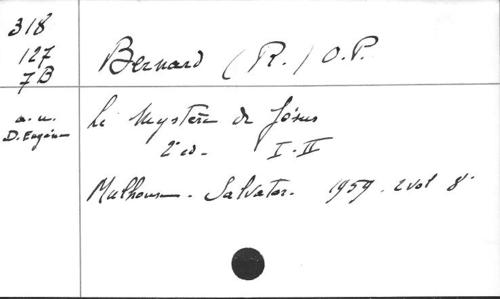 318
127
7B
Bernard (R.) O.P.
a. u.
D. Eugène
le Mystère de Jésus
2e éd. I-II
Mulhouse - Salvator. 1959. 2 vol 8°